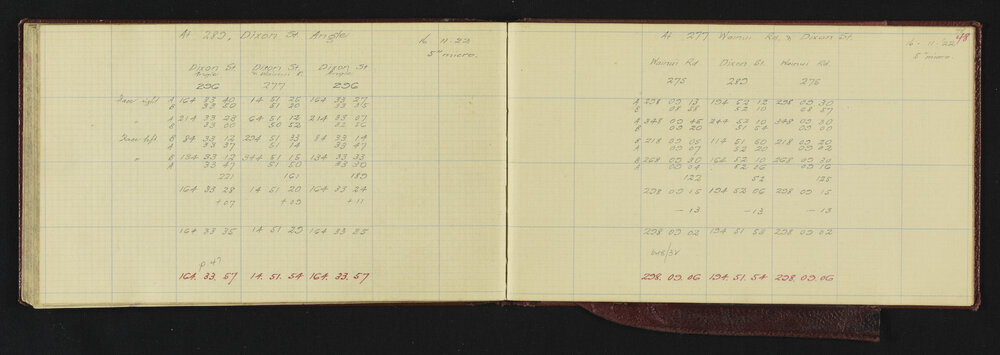 At 289, Dixon St Angle
16 . 11 . 22
5" micro.
Dixon St Dixon St Dixon St
Angle & Wainui R. Angle
296 277 296
Face right A 164 33 40 14 51 26 164 33 27
B 33 20 51 20 33 35
" A 214 33 28 64 51 12 214 33 07
B 33 00 50 52 32 56
Face left B 84 33 12 294 51 33 84 33 14
A 33 37 51 14 33 47
" B 134 33 12 344 51 15 134 33 33
A 33 47 51 50 33 30
221 161 189
164 33 28 14 51 20 164 33 24
+07 +09 +11
164 33 35 14 51 29 164 33 35
p 47
164. 33. 57 14. 51. 54 164. 33. 57
At 277 Wainui Rd. & Dixon St.
48
16 . 11 . '22
5" micro.
Wainui Rd. Dixon St. Wainui Rd.
275 289 275
A 298 09 13 194 52 12 298 09 30
B 08 58 52 10 08 57
A 348 09 45 244 52 10 348 09 30
B 09 20 51 54 09 00
B 218 09 05 114 51 50 218 09 20
A 09 07 52 20 09 02
B 268 09 30 164 52 10 268 09 30
A 09 04 52 16 09 16
122 52 125
298 09 15 194 52 06 298 09 15
— 13 — 13 — 13
298 09 02 194 51 53 298 09 02
298. 09. 06 194. 51. 54 298. 09. 06